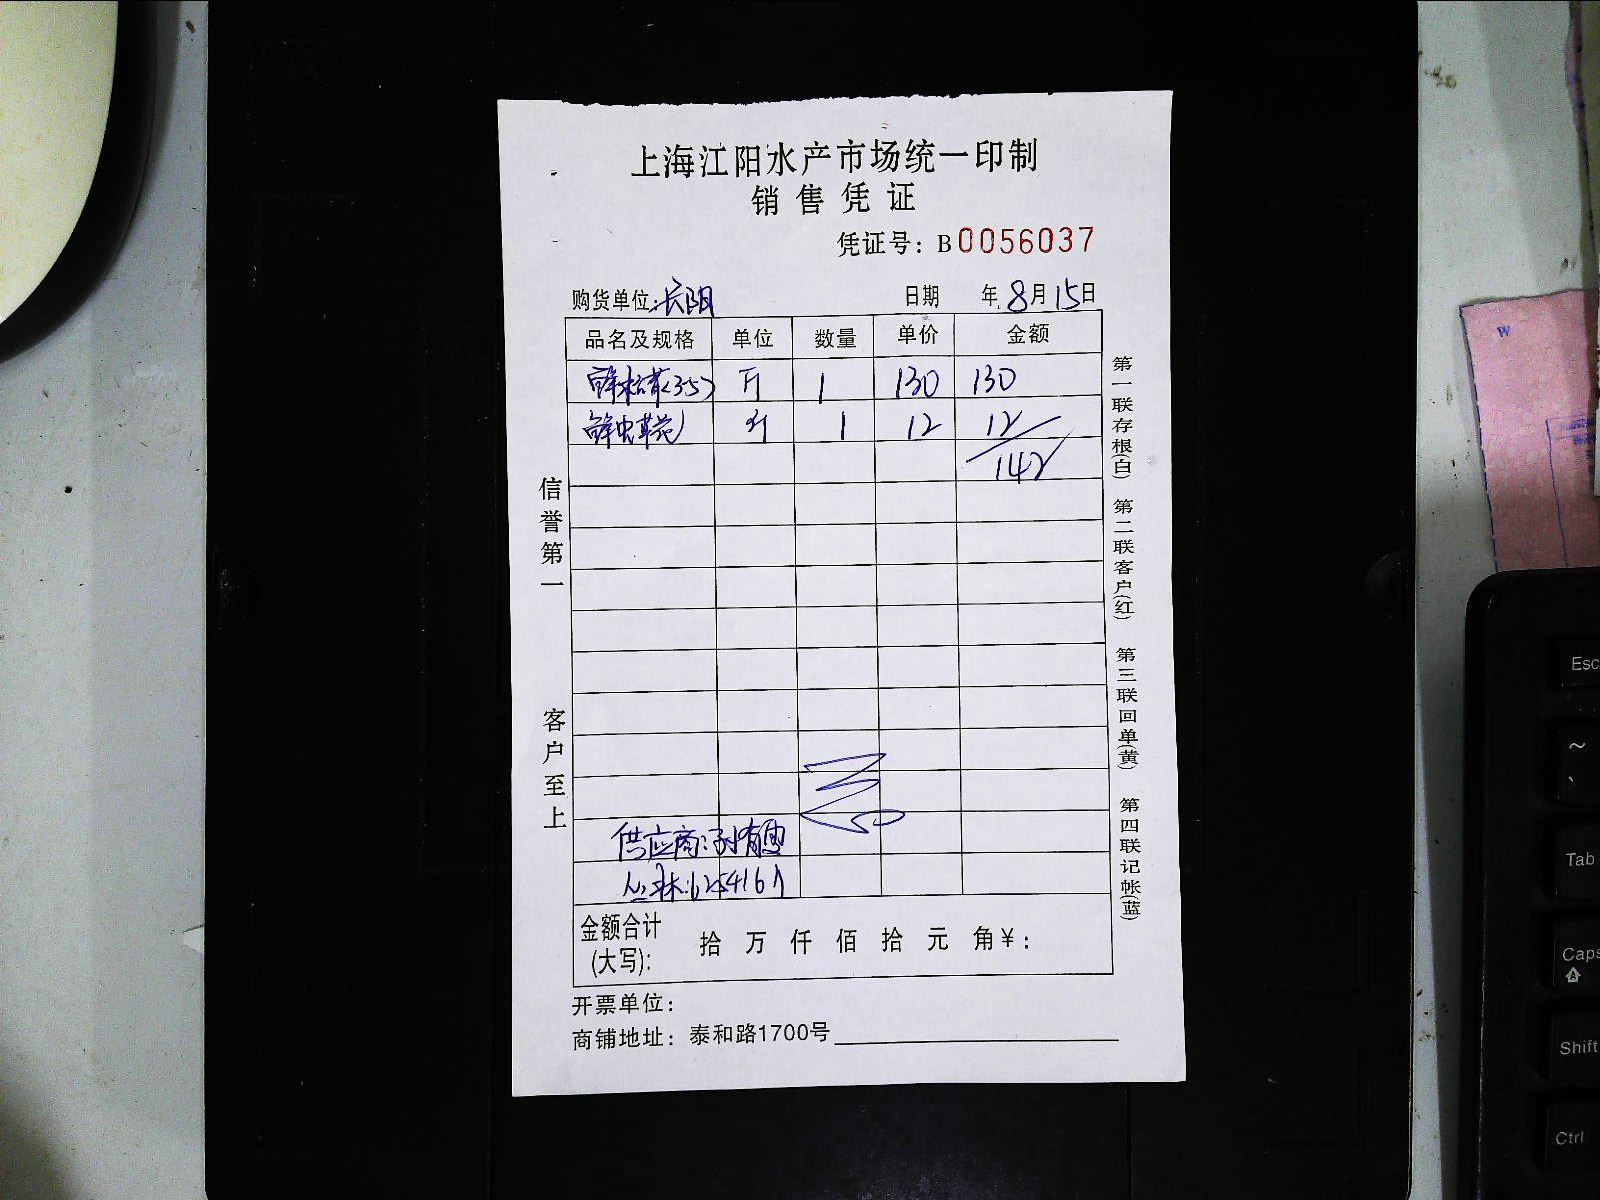 上海江阳水产市场统一印制
销售凭证
凭证号：B0056037
购货单位：长阳 日期 年 8月15日
品名及规格 单位 数量 单价 金额
鲜松茸(35) 斤 1 130 130
鲜虫草花 斤 1 12 12
142
信誉第一
客户至上
供应商：
金额合计(大写)： 拾 万 仟 佰 拾 元 角 ¥：
开票单位：
商铺地址：泰和路1700号
第一联存根(白) 第二联客户(红) 第三联回单(黄) 第四联记帐(蓝)
W
Esc
~
`
Tab
Caps
A
Shift
Ctrl